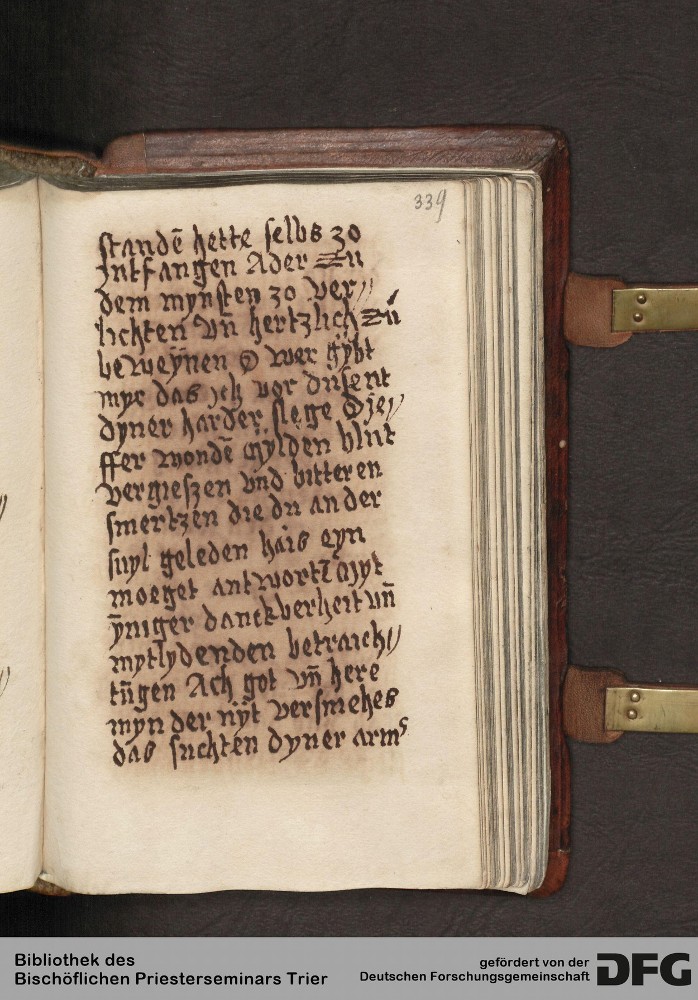 339
standē hette selbs zo
Intfangen Ader zu
dem mynsten zo ver//
lichten vn̄ hertzlich zú
beweÿnen O wer gÿbt
myr das ich vor dusent
dyner harder slege O je//
ffer wondē Gÿlden blut
vergieszen vnd bitteren
smertzen die du an der
suyl geleden hais eyn
morget antwortē Myt
ȳniger danckberheit vn̄
mytlydenden betraich//
tūgen Ach got vn̄ here
mỹn der nÿt versmehes
das suchten dyner armˢ
Bibliothek des
Bischöflichen Priesterseminars Trier
gefördert von der
Deutschen Forschungsgemeinschaft
DFG